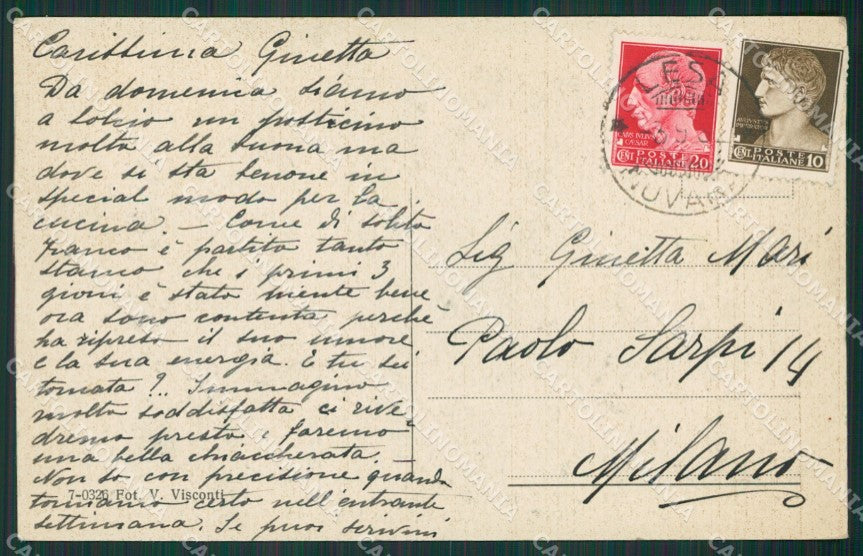 Carissima Ginetta
Da domenica siamo
a Solcio un posticino
molto alla buona ma
dove si sta benone in
special modo per la
cucina. – Come di solito
Franco è partito tanto
stanco che i primi 3
giorni è stato niente bene
ora sono contenta perchè
ha ripreso il suo umore
e la sua energia. E tu sei
tornata?.. Immagino
molto soddisfatta ci rive-
dremo presto e faremo
una bella chiaccherata. –
Non so con precisione quando
torniamo certo nell'entrante
settimana. Se puoi scrivimi
7-0326 Fot. V. Visconti
LESA
NOVARA
CAIVS IVLIVS
CAESAR
POSTE
ITALIANE
CENT. 20
AVGVSTVS
POSTE
ITALIANE
CENT. 10
Sig Ginetta Mari
Paolo Sarpi 14
Milano
CARTOLINOMANIA